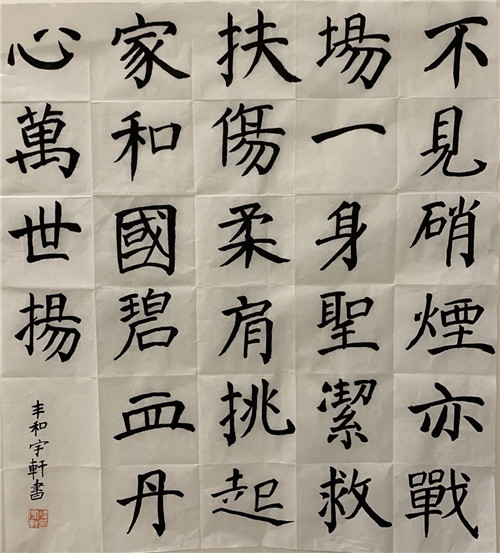 不見硝煙亦戰
場一身聖潔救
扶傷柔肩挑起
家和國碧血丹
心萬世揚
丰和宇軒書